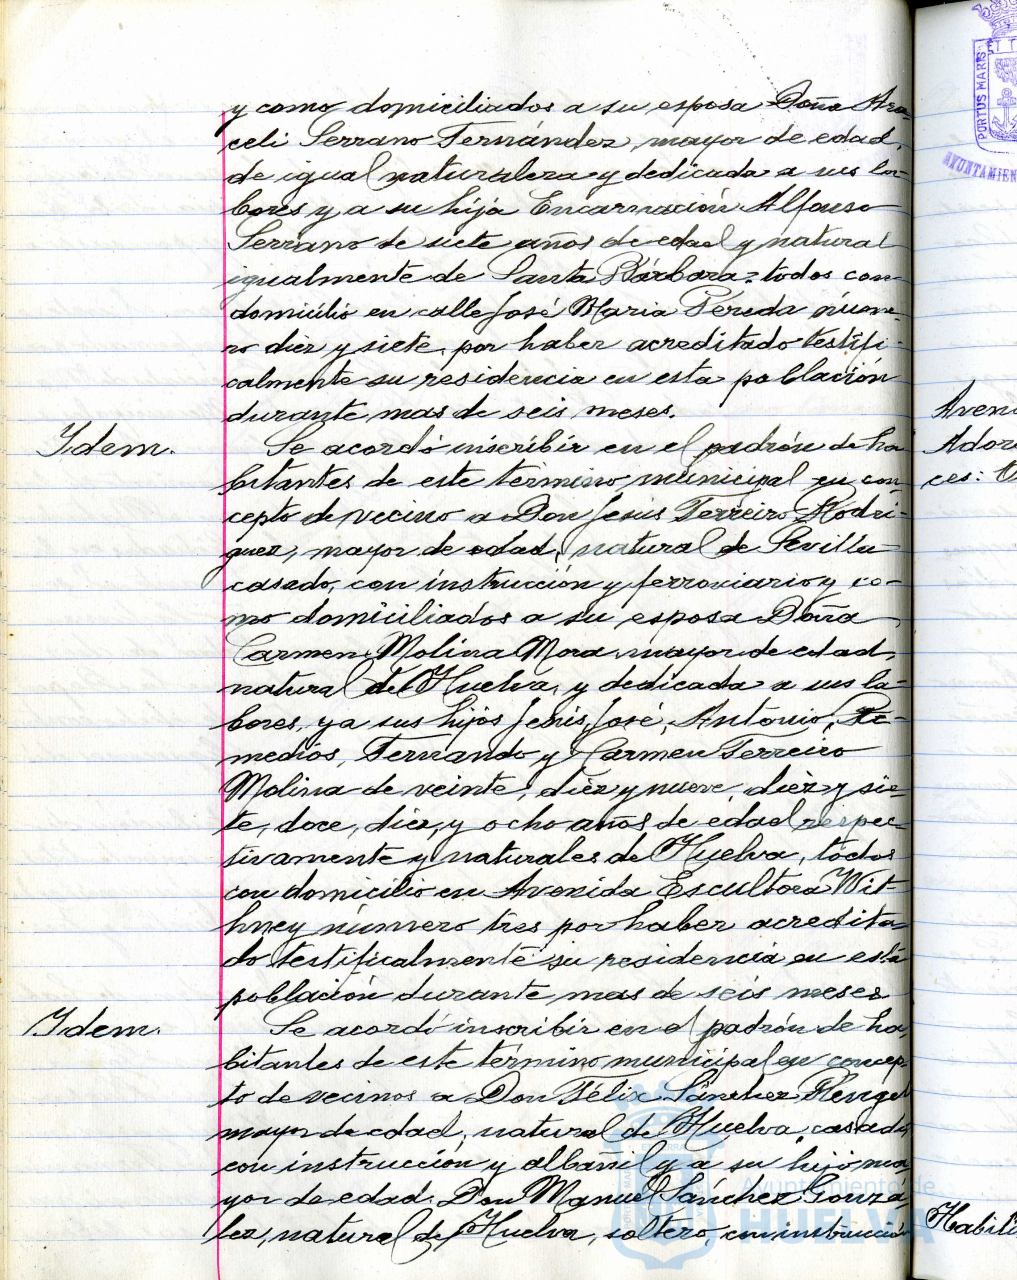 y como domiciliados a su esposa Doña Ara-
celi Serrano Fernández, mayor de edad,
de igual naturaleza y dedicada a sus la-
bores y a su hija Encarnación Alfonso
Serrano de siete años de edad y natural
igualmente de Santa Bárbara; todos con
domicilio en calle José Maria Pereda núme-
ro diez y siete, por haber acreditado testifi-
calmente su residencia en esta población
durante mas de seis meses.
Ydem.
Se acordó inscribir en el padrón de ha-
bitantes de este término municipal en con-
cepto de vecino a Don Jesús Ferreiro Rodri-
guez, mayor de edad, natural de Sevilla
casado, con instrucción y ferroviario y co-
mo domiciliados a su esposa Doña
Carmen Molina Mora mayor de edad,
natural de Huelva, y dedicada a sus la-
bores, y a sus hijos Jesús, José, Antonio, Re-
medios, Fernando y Carmen Ferreiro
Molina de veinte, diez y nueve, diez y sie-
te, doce, diez, y ocho años de edad respec-
tivamente y naturales de Huelva, todos
con domicilio en Avenida Escultora Wit-
hney número tres por haber acredita-
do testificalmente su residencia en esta
población durante mas de seis meses
Ydem.
Se acordó inscribir en el padrón de ha-
bitantes de este término municipal en concep-
to de vecinos a Don Félix Sánchez
mayor de edad, natural de Huelva, casado,
con instrucción y albañil y a su hijo ma-
yor de edad Don Manuel Sánchez Gonzá-
lez, natural de Huelva, soltero, con instrucción
Ayuntamiento de
HUELVA
PORTUS MARIS
AYUNTAMIEN
Aven
Ador
ces:
Habili